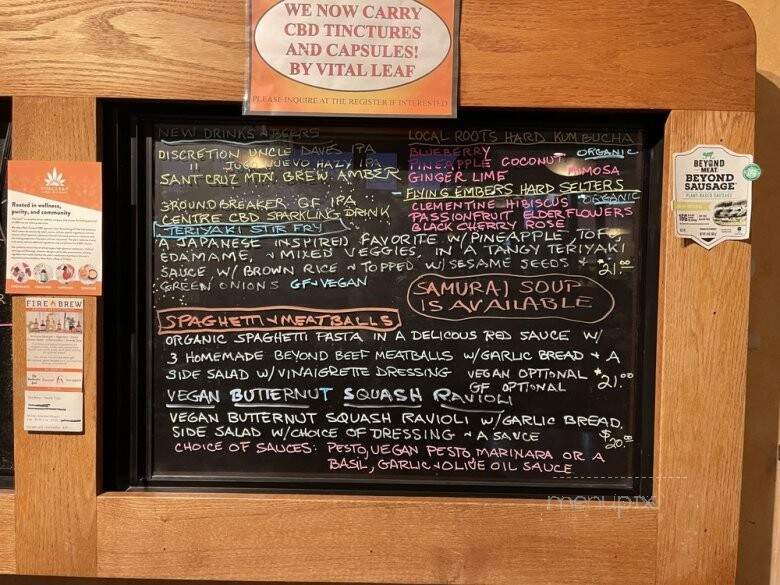 WE NOW CARRY
CBD TINCTURES
AND CAPSULES!
BY VITAL LEAF
PLEASE INQUIRE AT THE REGISTER IF INTERESTED
NEW DRINKS & BEERS
DISCRETION UNCLE DAVES IPA
" JUGO NUEVO HAZY IPA
SANT CRUZ MTN. BREW. AMBER
GROUNDBREAKER GF IPA
CENTRE CBD SPARKLING DRINK
LOCAL ROOTS HARD KUMBUCHA
BLUEBERRY ORGANIC
PINEAPPLE COCONUT MIMOSA
GINGER LIME
FLYING EMBERS HARD SELTERS
CLEMENTINE HIBISCUS ORGANIC
PASSIONFRUIT ELDERFLOWERS
BLACK CHERRY ROSE
TERIYAKI STIR FRY
A JAPANESE INSPIRED FAVORITE W/PINEAPPLE, TOFU
EDAMAME, & MIXED VEGGIES, IN A TANGY TERIYAKI
SAUCE W/ BROWN RICE & TOPPED W/SESAME SEEDS &
GREEN ONIONS GF & VEGAN $21.00
SAMURAI SOUP
IS AVAILABLE
SPAGHETTI & MEATBALLS
ORGANIC SPAGHETTI PASTA IN A DELICOUS RED SAUCE W/
3 HOMEMADE BEYOND BEEF MEATBALLS W/GARLIC BREAD & A
SIDE SALAD W/VINAIGRETTE DRESSING VEGAN OPTIONAL
GF OPTIONAL $21.00
VEGAN BUTTERNUT SQUASH RAVIOLI
VEGAN BUTTERNUT SQUASH RAVIOLI W/GARLIC BREAD,
SIDE SALAD W/CHOICE OF DRESSING & A SAUCE $20.00
CHOICE OF SAUCES: PESTO, VEGAN PESTO, MARINARA OR A
BASIL, GARLIC & OLIVE OIL SAUCE
VITAL LEAF
Rooted in wellness,
purity, and community
FIRE BREW
BEYOND MEAT
BEYOND
SAUSAGE
PLANT-BASED SAUSAGE
16G
menupix